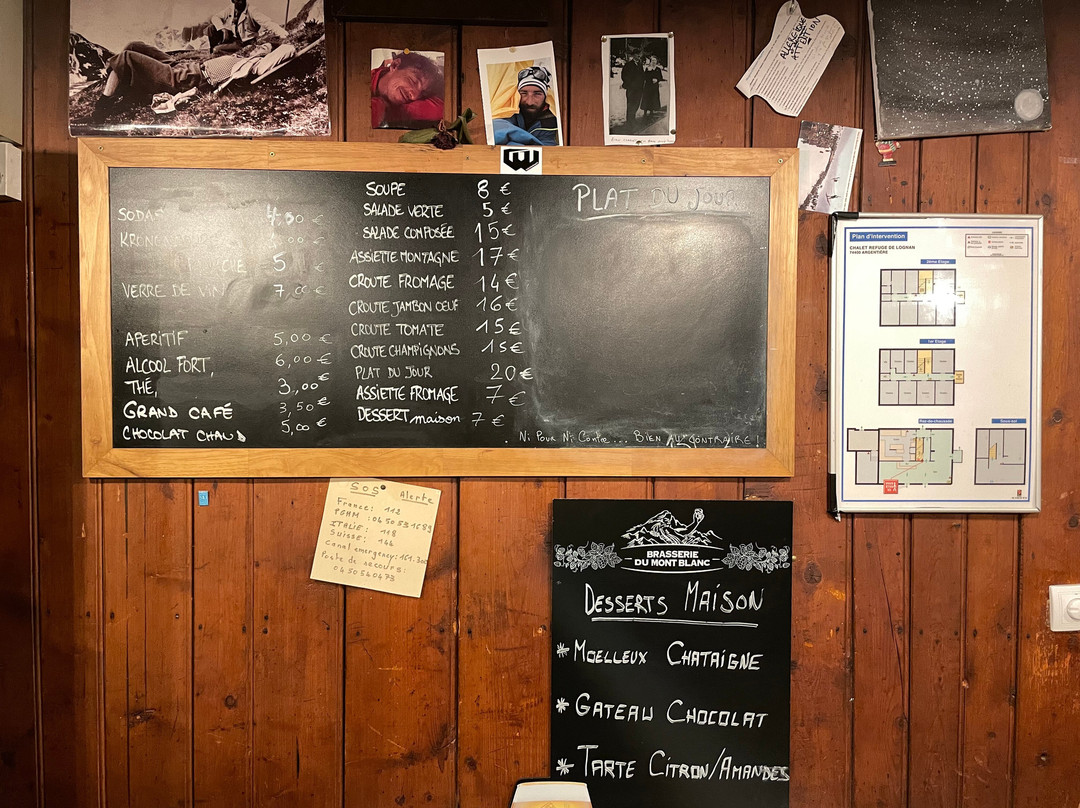 ALLERGIQUE
ATTENTION
SODAS 4,50 €
KRON €
5 €
VERRE DE VIN 7,00 €
APERITIF 5,00 €
ALCOOL FORT, 6,00 €
THÉ, 3,00 €
GRAND CAFÉ 3,50 €
CHOCOLAT CHAUD 5,00 €
SOUPE 8 €
SALADE VERTE 5 €
SALADE COMPOSÉE 15 €
ASSIETTE MONTAGNE 17 €
CROUTE FROMAGE 14 €
CROUTE JAMBON OEUF 16 €
CROUTE TOMATE 15 €
CROUTE CHAMPIGNONS 15 €
PLAT DU JOUR 20 €
ASSIETTE FROMAGE 7 €
DESSERT maison 7 €
PLAT DU JOUR
. Ni Pour Ni Contre ... BIEN AU CONTRAIRE !
Plan d'intervention
CHALET REFUGE DE LOGNAN
74400 ARGENTIERE
2ème Etage
1er Etage
Rez-de-chaussée
Sous-sol
SOS Alerte
France: 112
PGHM : 04 50 53 16 89
ITALIE: 118
SUISSE: 144
Canal emergency: 161.300
Poste de secours:
0450540473
BRASSERIE
DU MONT BLANC
DESSERTS MAISON
* MOELLEUX CHATAIGNE
* GATEAU CHOCOLAT
* TARTE CITRON/AMANDES